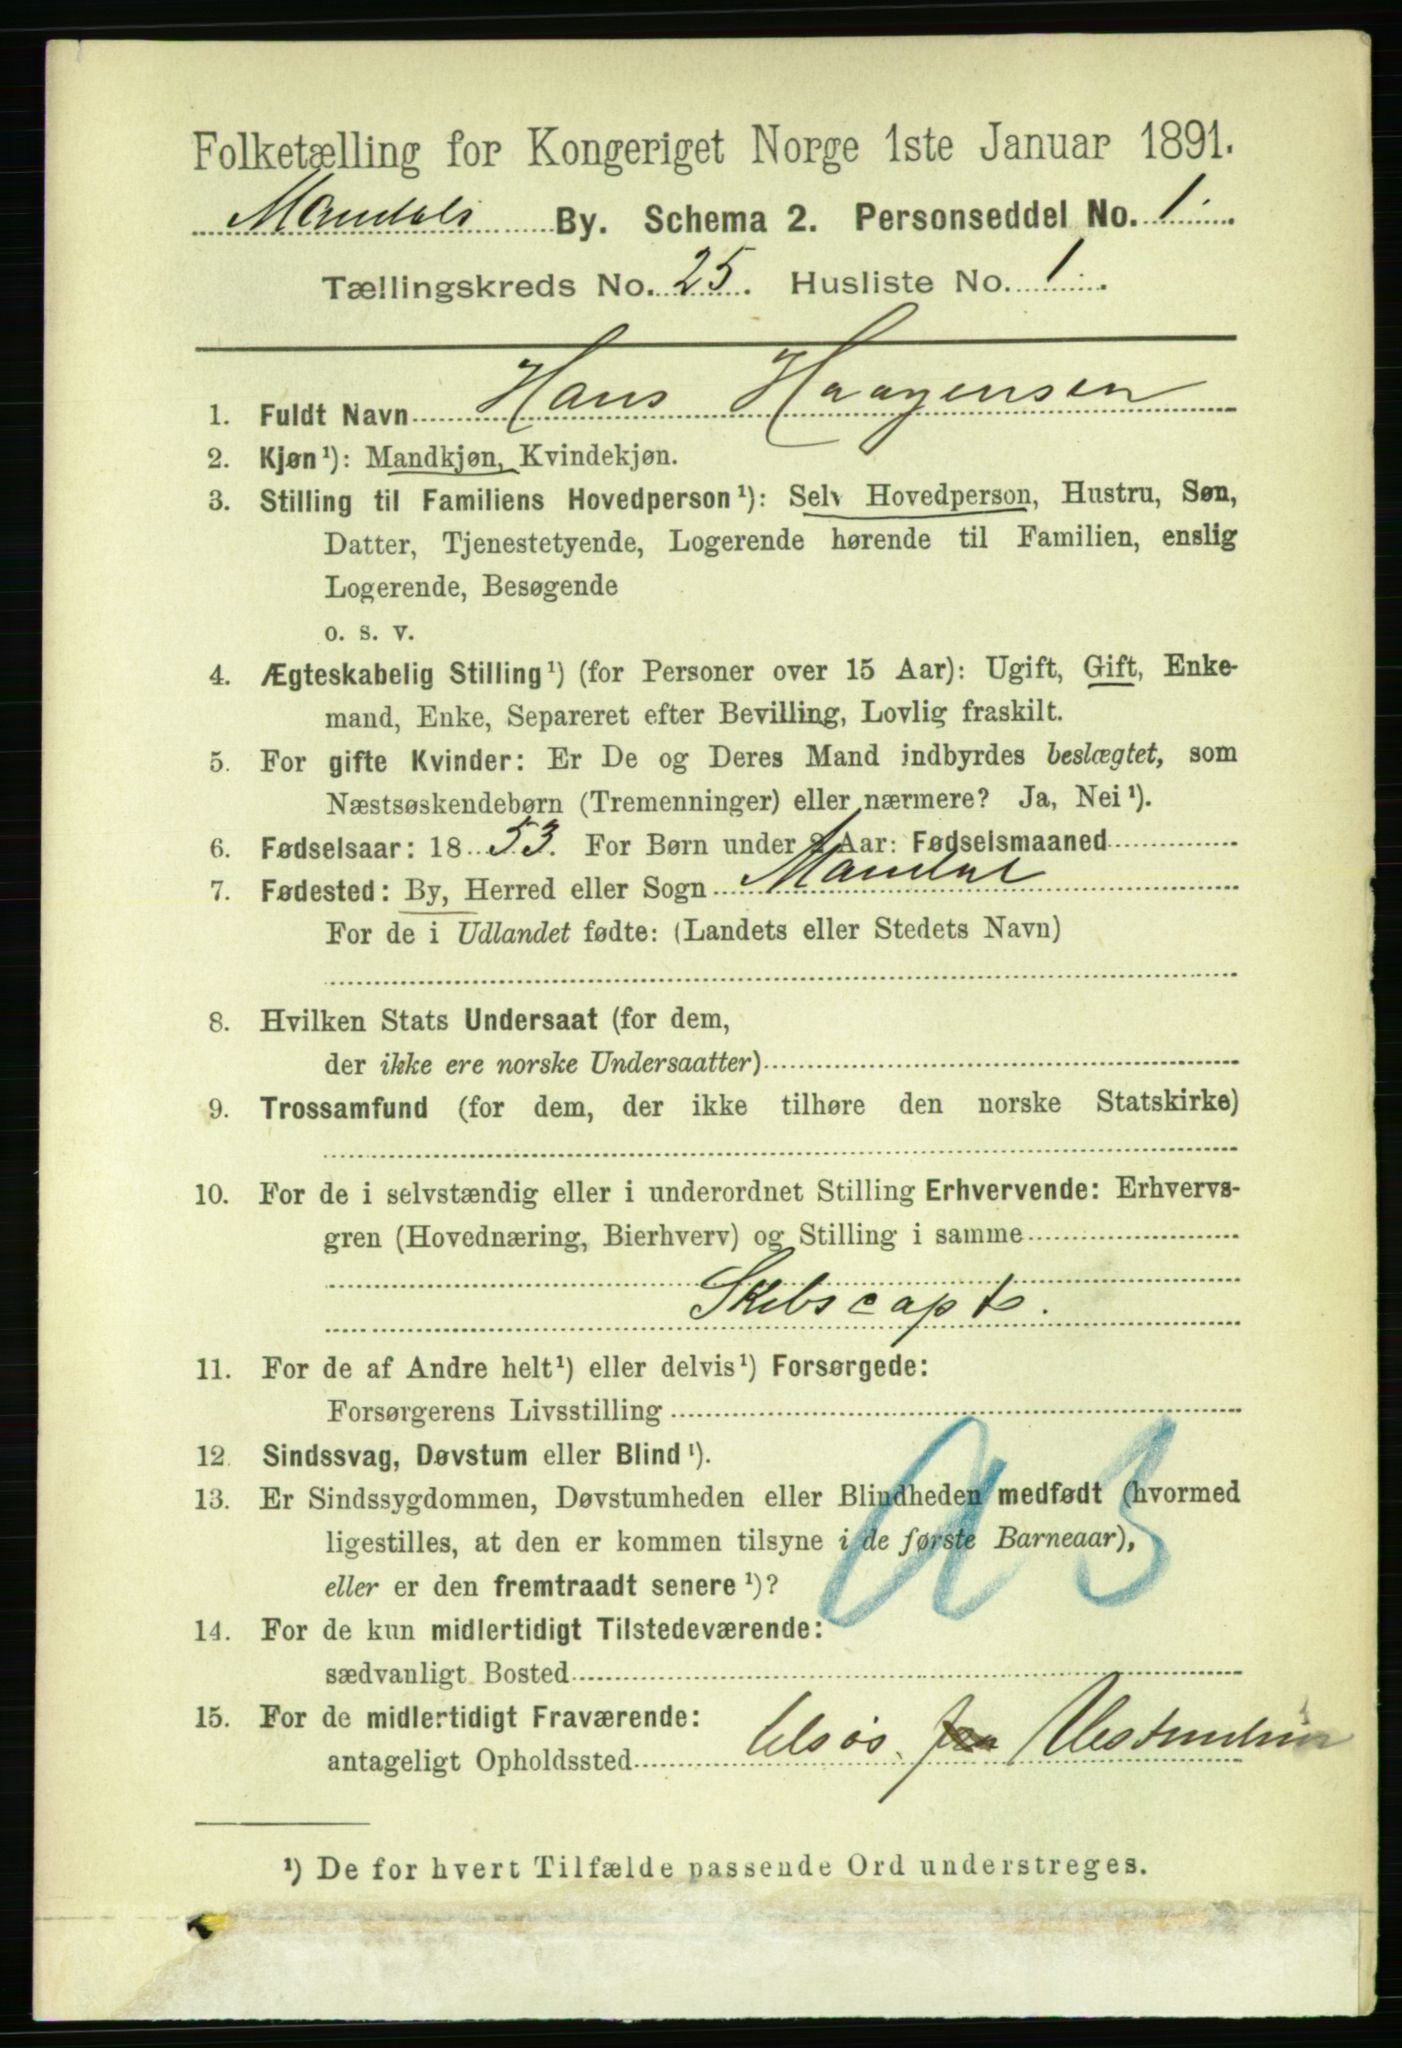 Folketælling for Kongeriget Norge 1ste Januar 1891.
Mandals By. Schema 2. Personseddel No. 1.
Tællingskreds No. 25. Husliste No. 1.
1. Fuldt Navn Hans Haagensen
2. Kjøn¹): Mandkjøn, Kvindekjøn.
3. Stilling til Familiens Hovedperson¹): Selv Hovedperson, Hustru, Søn,
Datter, Tjenestetyende, Logerende hørende til Familien, enslig
Logerende, Besøgende
o. s. v.
4. Ægteskabelig Stilling¹) (for Personer over 15 Aar): Ugift, Gift, Enke-
mand, Enke, Separeret efter Bevilling, Lovlig fraskilt.
5. For gifte Kvinder: Er De og Deres Mand indbyrdes beslægtet, som
Næstsøskendebørn (Tremenninger) eller nærmere? Ja, Nei¹).
6. Fødselsaar: 1853. For Børn under 2 Aar: Fødselsmaaned
7. Fødested: By, Herred eller Sogn Mandal
For de i Udlandet fødte: (Landets eller Stedets Navn)
8. Hvilken Stats Undersaat (for dem,
der ikke ere norske Undersaatter)
9. Trossamfund (for dem, der ikke tilhøre den norske Statskirke)
10. For de i selvstændig eller i underordnet Stilling Erhvervende: Erhvervs-
gren (Hovednæring, Bierhverv) og Stilling i samme
Skibscapt.
11. For de af Andre helt¹) eller delvis¹) Forsørgede:
Forsørgerens Livsstilling
12. Sindssvag, Døvstum eller Blind¹).
13. Er Sindssygdommen, Døvstumheden eller Blindheden medfødt (hvormed
ligestilles, at den er kommen tilsyne i de første Barneaar),
eller er den fremtraadt senere¹)?
14. For de kun midlertidigt Tilstedeværende:
sædvanligt Bosted
15. For de midlertidigt Fraværende:
antageligt Opholdssted tilsøs. fra
¹) De for hvert Tilfælde passende Ord understreges.